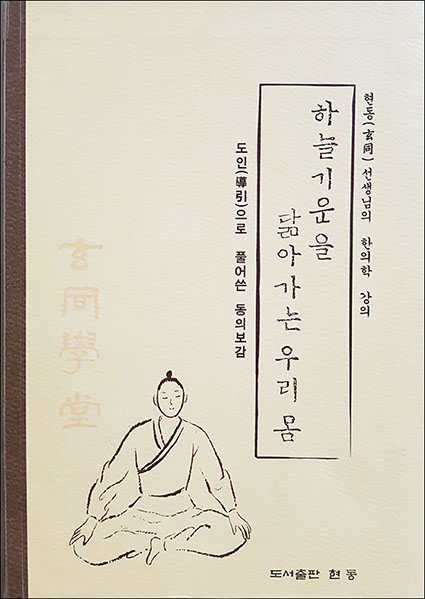 현동(玄同) 선생님의 한의학 강의
하늘기운을
닮아가는 우리 몸
도인(導引)으로 풀어쓴 동의보감
玄同學堂
도서출판 현동